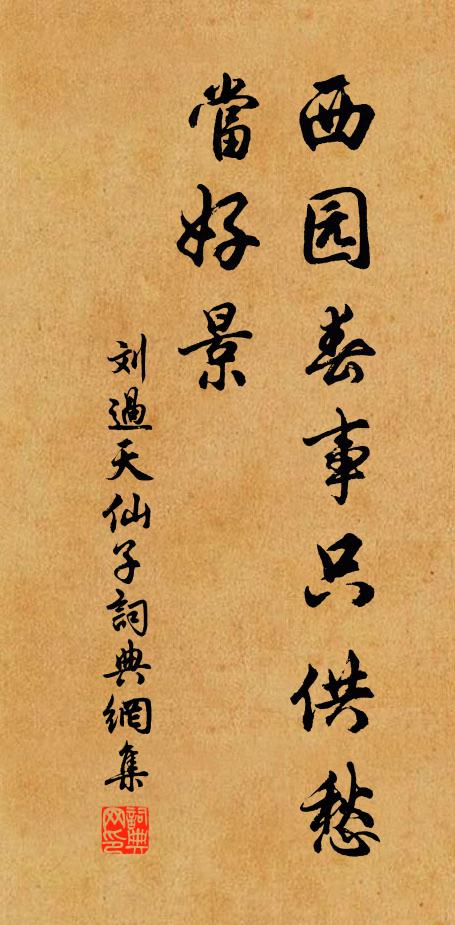 西园春事只供愁
當好景
刘過天仙子詞典網集
詞典
网印